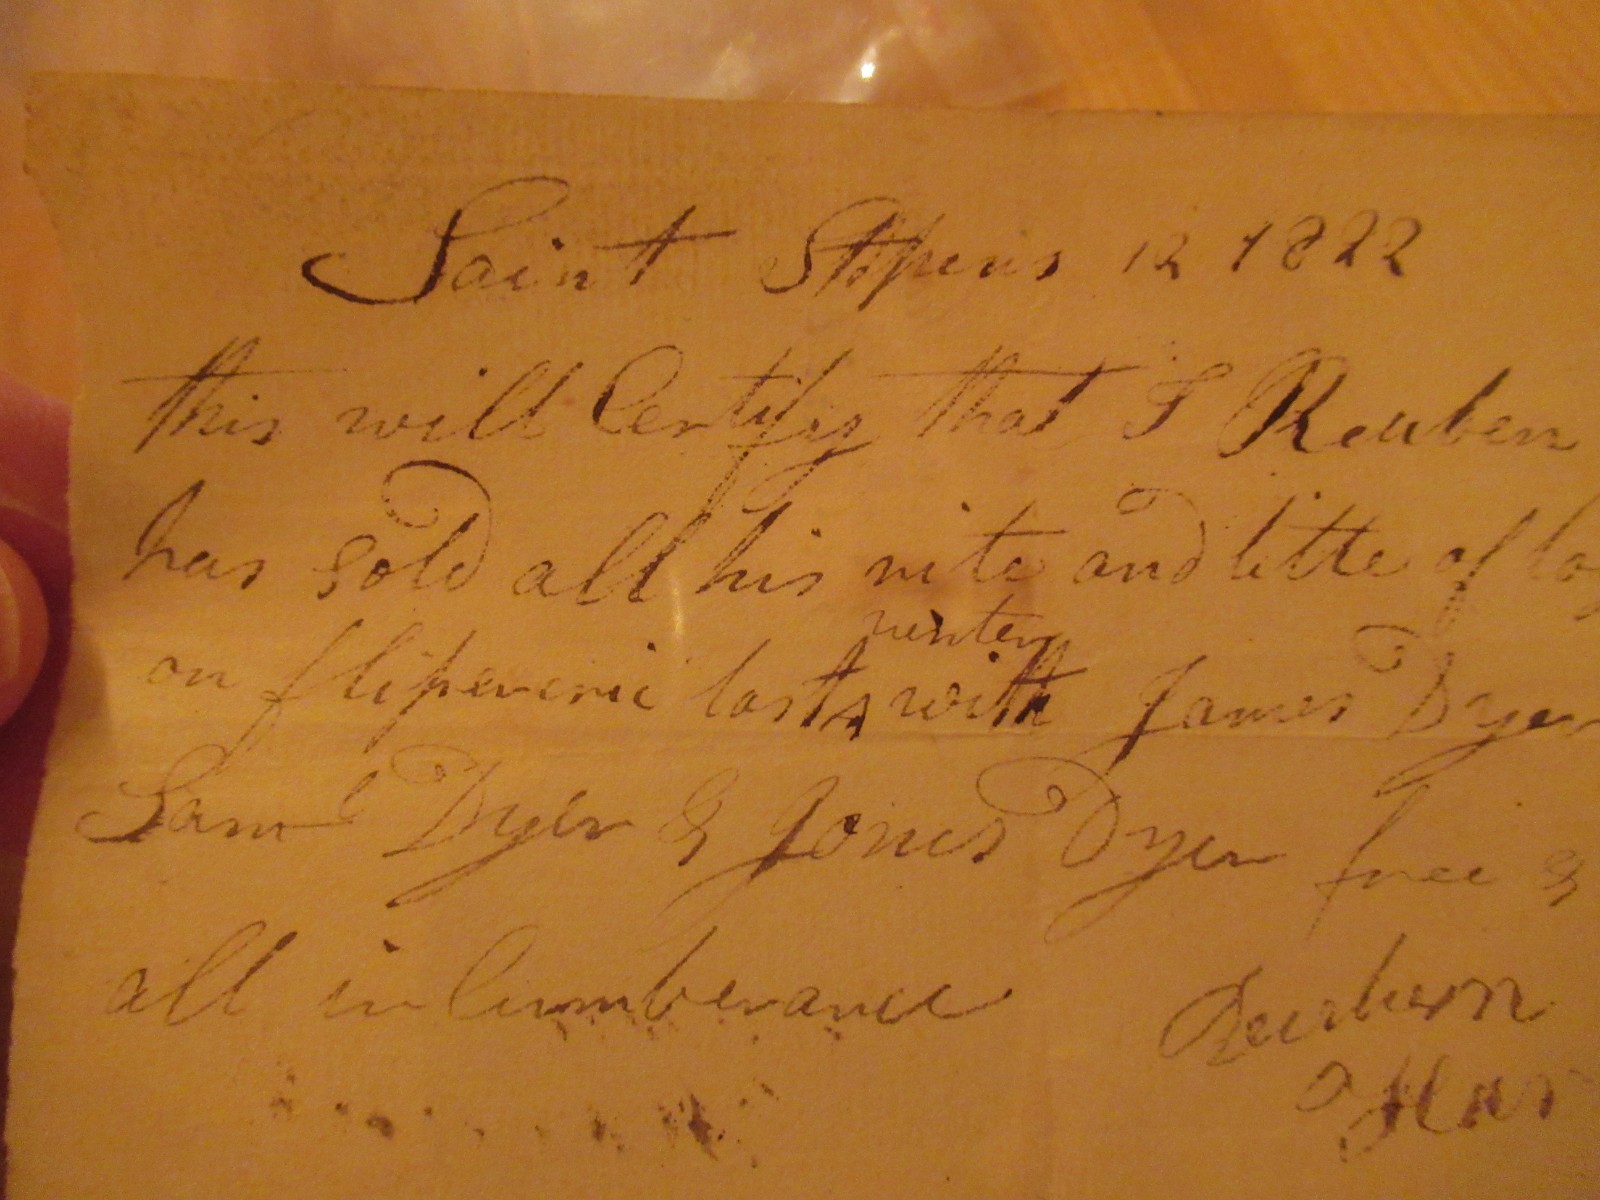 Saint Stepens 12 1822
this will Certify that I Reuben
has sold all his rite and titte of
on last winter with James Dyer
Sam^l Dyer & Jones Dyer free &
all in Cumberance
Reuben